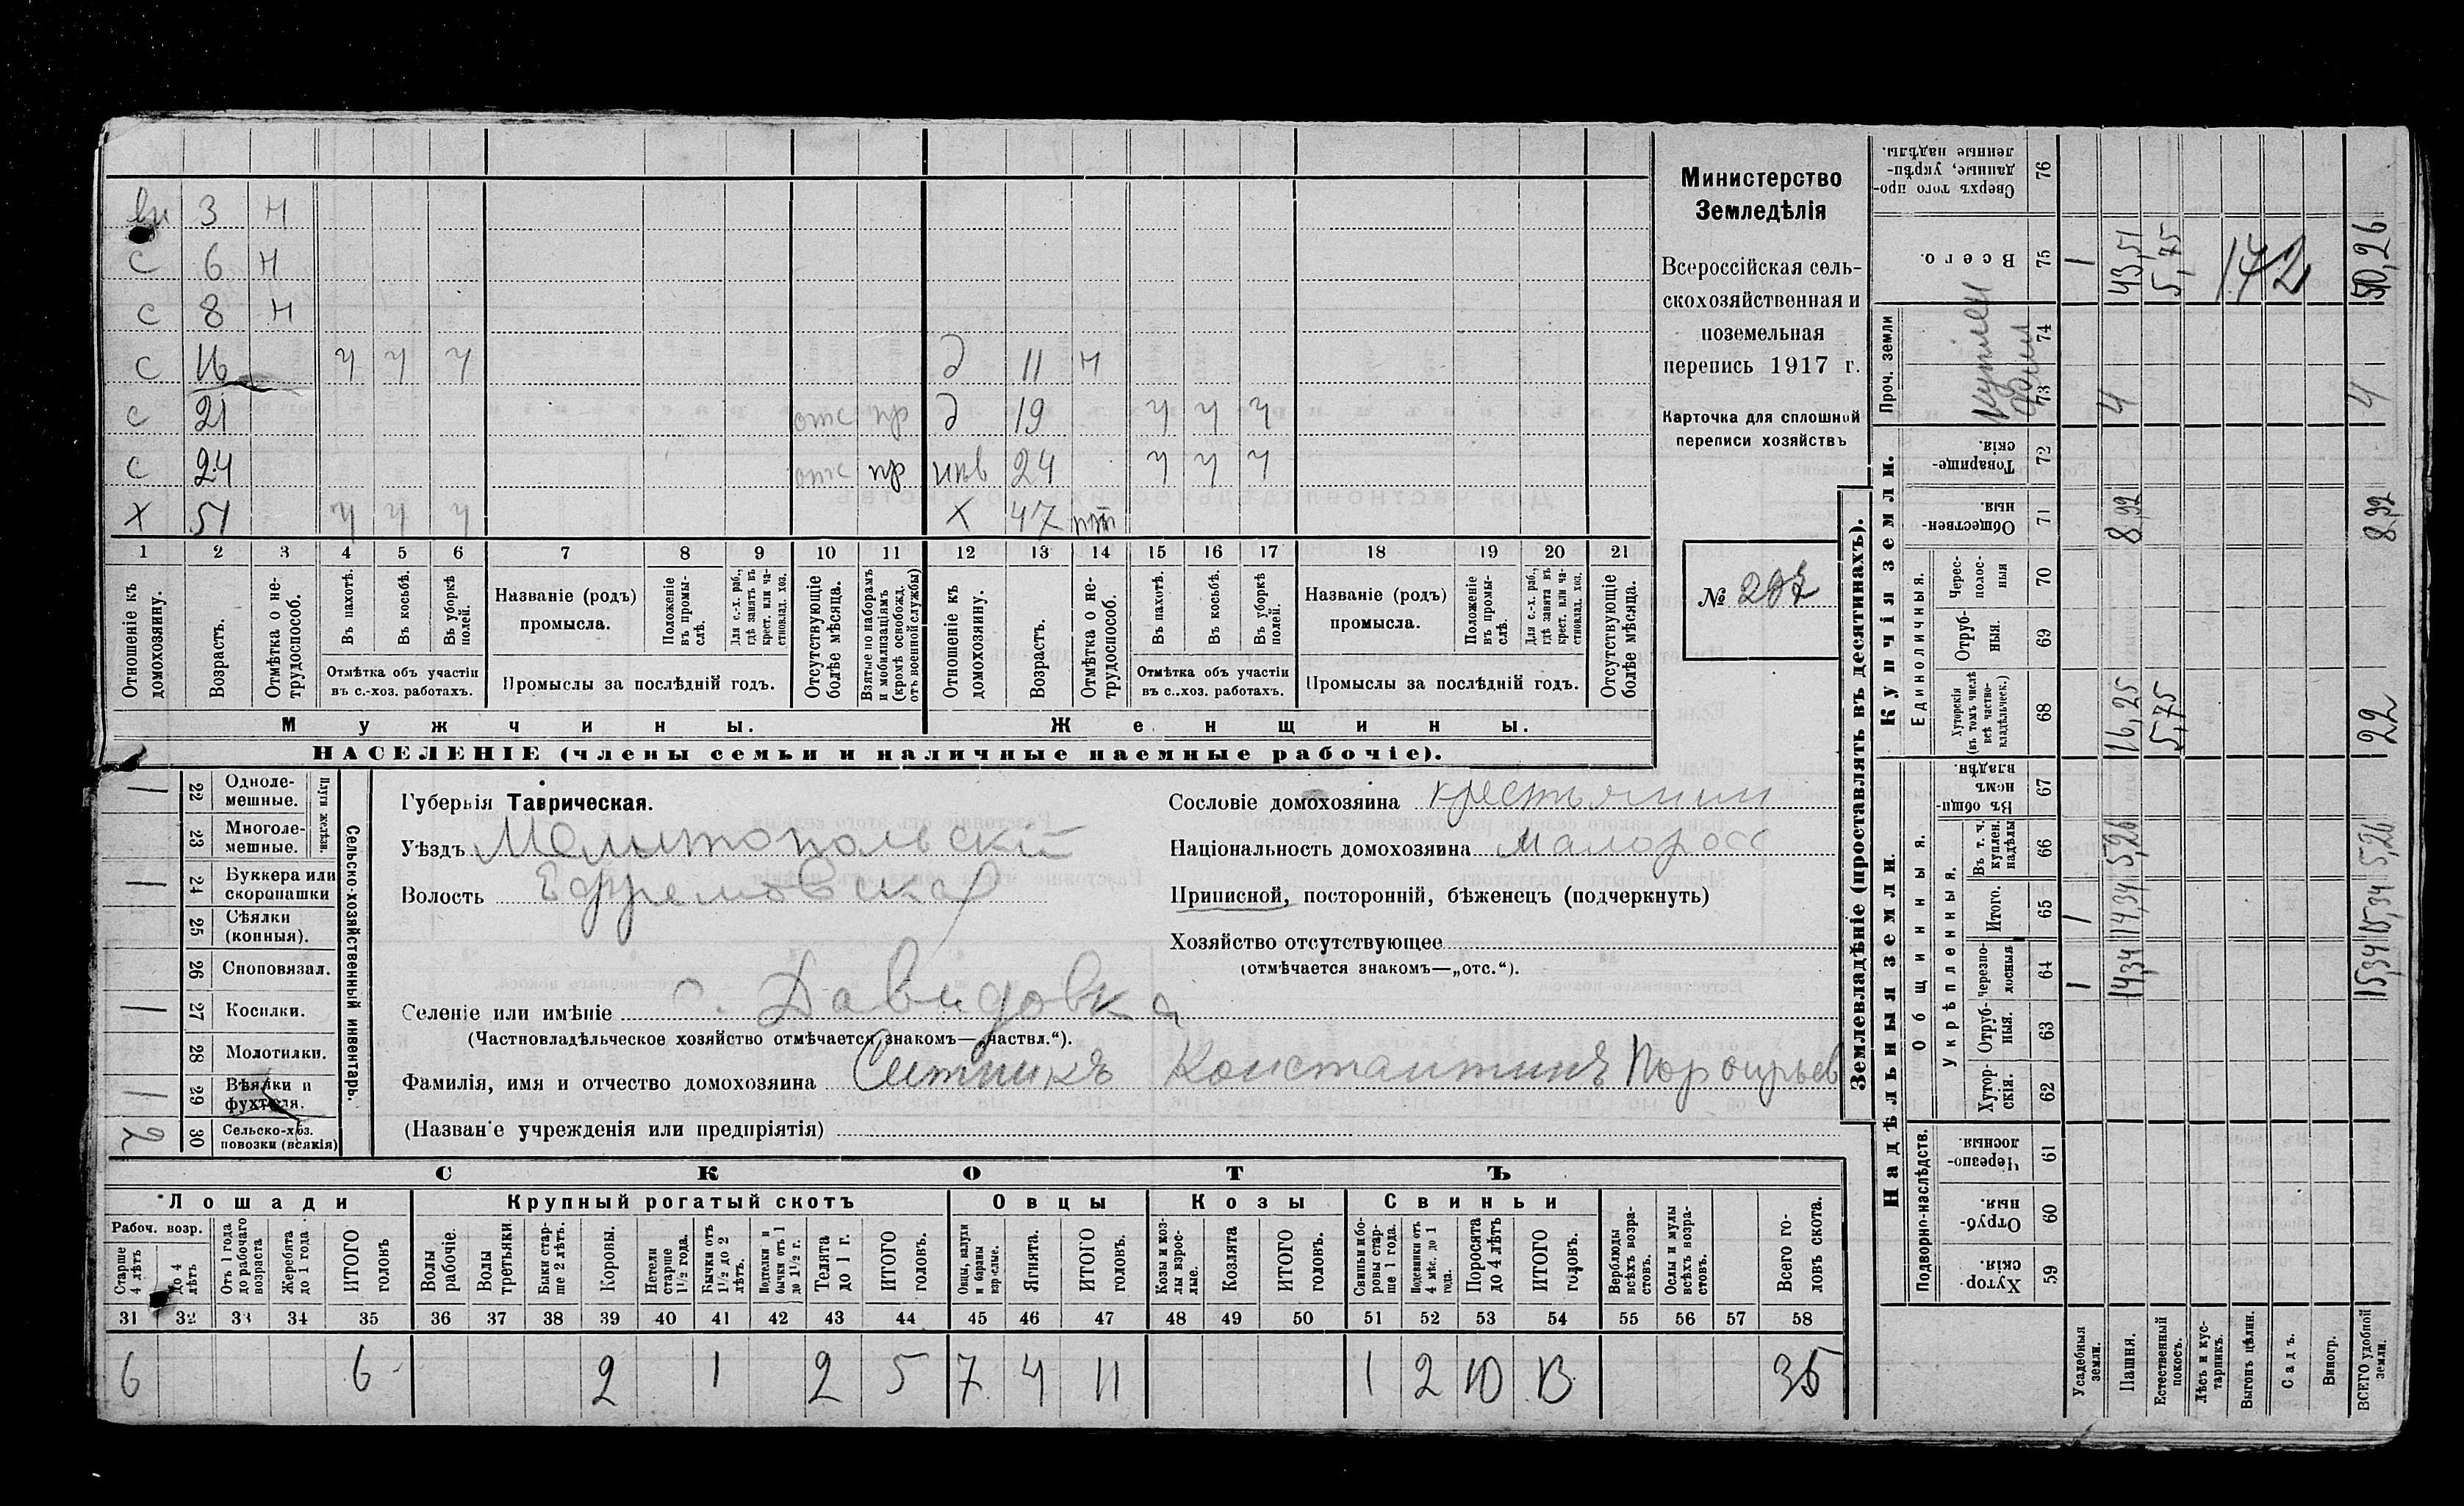 вн 3 н
с 6 н
с 8 н
с 16 ч ч ч д 11 н
с 21 отс пр д 19 ч ч ч
с 24 отс пр инв 24 ч ч ч
х 51 ч ч ч х 47 
1 2 3 4 5 6 7 8 9 10 11 12 13 14 15 16 17 18 19 20 21
Отношеніе къ домохозяину.
Возрастъ.
Отмѣтка о нетрудоспособ.
Въ пахотѣ.
Въ косьбѣ.
Въ уборкѣ полей.
Отмѣтка объ участіи
въ с.-хоз. работахъ.
Названіе (родъ)
промысла.
Положеніе въ промыслѣ.
Для с.-х. раб., гдѣ занятъ въ крест. или частновлад. хоз.
Промыслы за послѣдній годъ.
Отсутствующіе болѣе мѣсяца.
Взятые по наборамъ и мобилизаціямъ (кромѣ освобожд. отъ военной службы)
Отношеніе къ домохозяину.
Возрастъ.
Отмѣтка о нетрудоспособ.
Въ пахотѣ.
Въ косьбѣ.
Въ уборкѣ полей.
Отмѣтка объ участіи
въ с.-хоз. работахъ.
Названіе (родъ)
промысла.
Положеніе въ промыслѣ.
Для с.-х. раб., гдѣ занята въ крест. или частновлад. хоз.
Промыслы за послѣдній годъ.
Отсутствующіе болѣе мѣсяца.
Мужчины. Женщины.
НАСЕЛЕНІЕ (члены семьи и наличные наемные рабочіе).
Министерство
Земледѣлія
Всероссійская сель-
скохозяйственная и
поземельная
перепись 1917 г.
Карточка для сплошной
переписи хозяйствъ
№
Сельско-хозяйственный инвентарь.
Плуги желѣзн.
1 22 Одноле-
мешные.
23 Многоле-
мешные.
1 24 Буккера или
скоропашки
25 Сѣялки
(конныя).
26 Сноповязал.
1 27 Косилки.
28 Молотилки.
1 29 Вѣялки и
фухтеля.
2 30 Сельско-хоз.
повозки (всякія)
Губернія Таврическая.
Уѣздъ Мелитопольскій
Волость Ефремовская
Селеніе или имѣніе с. Давидовка
(Частновладѣльческое хозяйство отмѣчается знакомъ—„частвл.“).
Фамилія, имя и отчество домохозяина Ситникъ Константинъ Порфирьев
(Названіе учрежденія или предпріятія)
Сословіе домохозяина крестьянин
Національность домохозяина малоросс
Приписной, посторонній, бѣженецъ (подчеркнуть)
Хозяйство отсутствующее
(отмѣчается знакомъ—„отс.“).
СКОТЪ
Лошади Крупный рогатый скотъ Овцы Козы Свиньи
Рабоч. возр.
Старше 4 лѣтъ
До 4 лѣтъ
Отъ 1 года до рабочаго возраста
Жеребята до 1 года
ИТОГО головъ
Волы рабочіе.
Волы третьяки
Быки старше 2 лѣтъ.
Коровы.
Нетели старше 1½ года.
Бычки отъ 1½ до 2 лѣтъ.
Подтелки и бычки отъ 1 до 1½ г.
Телята до 1 г.
ИТОГО головъ.
Овцы, валухи и бараны взрослые.
Ягнята.
ИТОГО головъ.
Козы и козлы взрослые.
Козлята
ИТОГО головъ.
Свиньи и боровы старше 1 года.
Подсвинки отъ 4 мѣс. до 1 года.
Поросята до 4 лѣтъ
ИТОГО головъ.
Верблюды всѣхъ возрастовъ.
Ослы и мулы всѣхъ возрастовъ.
Всего головъ скота.
31 32 33 34 35 36 37 38 39 40 41 42 43 44 45 46 47 48 49 50 51 52 53 54 55 56 57 58
6 6 2 1 2 5 7 4 11 1 2 10 13 35
Землевладѣніе (проставлять въ десятинахъ).
Надѣльныя земли. Купчія земли. Проч. земли
Подворно-наслѣдств.
Общинныя.
Укрѣпленныя.
Единоличныя.
Хуторскія 59
Отрубныя 60
Черезполосныя 61
Хуторскія. 62
Отрубныя. 63
Черезполосныя 64
Итого. 65
Въ т. ч. куплен. надѣлы 66
Въ общинномъ владѣн. 67
Хуторскія (въ томъ числѣ всѣ частновладѣльческ.) 68
Отрубныя. 69
Черезполосныя 70
Общественныя. 71
Товарищескія. 72
73 74
Всего. 75
Сверхъ того проданные, укрѣпленные надѣлы. 76
Усадебныя земли. 1 1 1
Пашня. 14,34 14,34 5,26 16,25 8,92 4 43,51
Естественный покосъ. 5,75 5,75
Лѣсъ и кустарникъ.
Выгонъ цѣлин.
Садъ.
Виногр.
ВСЕГО удобной земли. 15,34 15,34 5,26 22 8,92 4 50,26
142